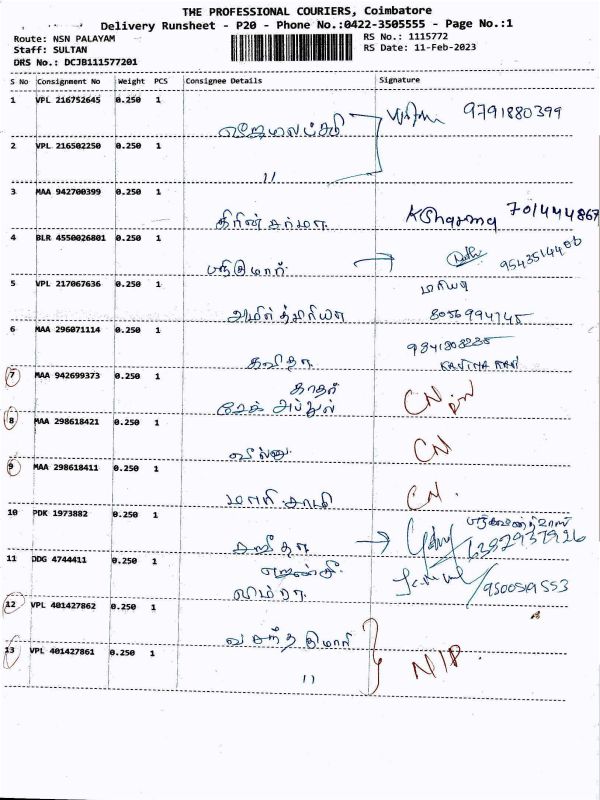 THE PROFESSIONAL COURIERS, Coimbatore
Delivery Runsheet - P20 - Phone No.:0422-3505555 - Page No.:1
Route: NSN PALAYAM
RS No.: 1115772
Staff: SULTAN
RS Date: 11-Feb-2023
DRS No.: DCJB111577201
S No Consignment No Weight PCS Consignee Details Signature
1 VPL 216752645 0.250 1
9791880399
விஜயலட்சுமி
2 VPL 216502250 0.250 1
11
3 MAA 942700399 0.250 1
கிரின் சர்மா KSharma 701444867
4 BLR 4550026801 0.250 1
9543514406
5 VPL 217067636 0.250 1
மரியா
8056994745
6 MAA 296071114 0.250 1
9841308235
கவிதா KAVITHA RANI
7 MAA 942699373 0.250 1
காதர்
சேக் அப்துல் CN
8 MAA 298618421 0.250 1
CN
9 MAA 298618411 0.250 1
CN.
10 PDK 1973882 0.250 1
6382937926
11 DDG 4744411 0.250 1
ஏஜென்சி
9500519553
12 VPL 401427862 0.250 1
வசந்தகுமாரி
13 VPL 401427861 0.250 1
N/P.
11